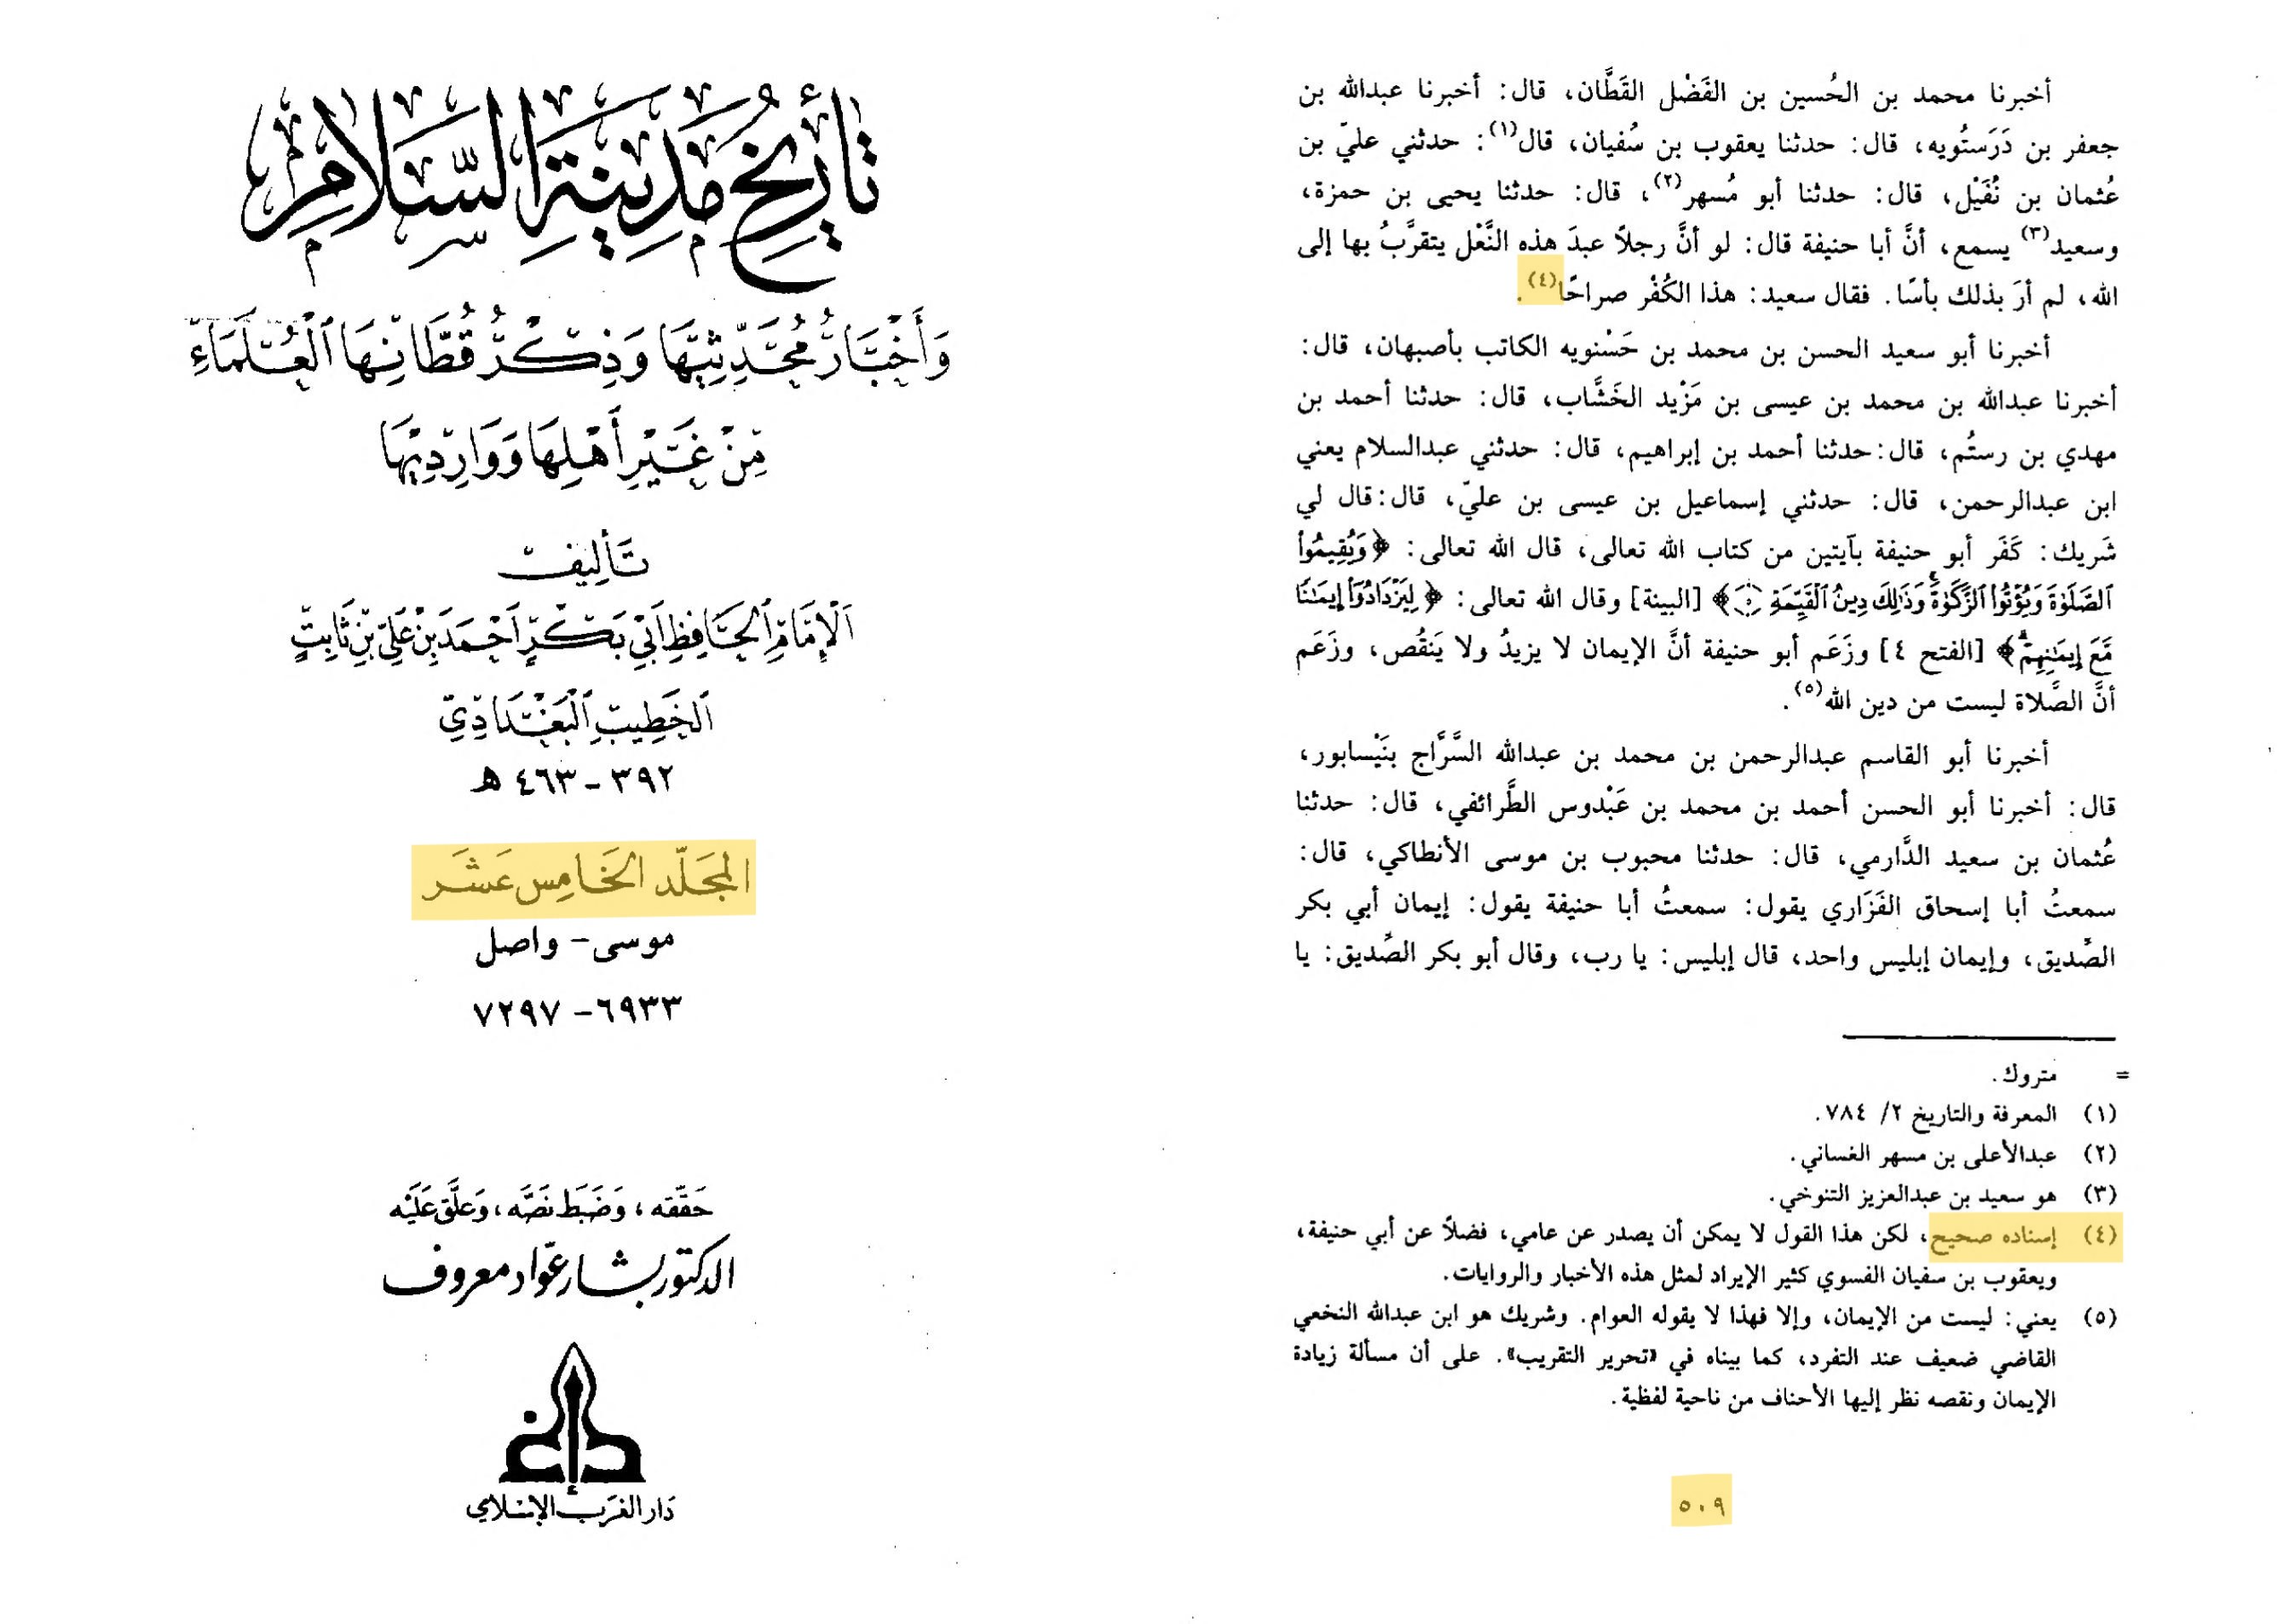 تأريخ مدينة السلام
وَأَخْبَارُ مُحَدِّثِيهَا وَذِكْرُ قُطَّانِهَا ٱلْعُلَمَاءِ
مِنْ غَيْرِ أَهْلِهَا وَوَارِدِيهَا
تأليف
الإمام الحافظ أبي بكر أحمد بن علي بن ثابت
الخطيب البغدادي
٣٩٢ - ٤٦٣ هـ
المجلد الخامس عشر
موسى - واصل
٦٩٣٣ - ٧٢٩٧
حققه، وضبط نصه، وعلق عليه
الدكتور بشار عواد معروف
دار الغرب الإسلامي
أخبرنا محمد بن الحُسين بن الفَضْل القَطَّان، قال: أخبرنا عبدالله بن
جعفر بن دَرَستُويه، قال: حدثنا يعقوب بن سُفيان، قال(١): حدثني عليّ بن
عُثمان بن نُفَيْل، قال: حدثنا أبو مُسهر(٢)، قال: حدثنا يحيى بن حمزة،
وسعيد(٣) يسمع، أنَّ أبا حنيفة قال: لو أنَّ رجلاً عبدَ هذه النَّعْل يتقرَّبُ بها إلى
الله، لم أرَ بذلك بأسًا. فقال سعيد: هذا الكُفْر صراحًا(٤).
أخبرنا أبو سعيد الحسن بن محمد بن حَسْنويه الكاتب بأصبهان، قال:
أخبرنا عبدالله بن محمد بن عيسى بن مَزْيد الخَشَّاب، قال: حدثنا أحمد بن
مهدي بن رستُم، قال: حدثنا أحمد بن إبراهيم، قال: حدثني عبدالسلام يعني
ابن عبدالرحمن، قال: حدثني إسماعيل بن عيسى بن عليّ، قال: قال لي
شَريك: كَفَر أبو حنيفة بآيتين من كتاب الله تعالى، قال الله تعالى: ﴿وَيُقِيمُوا۟
ٱلصَّلَوٰةَ وَيُؤْتُوا۟ ٱلزَّكَوٰةَ وَذَٰلِكَ دِينُ ٱلْقَيِّمَةِ ۝٥﴾ [البينة] وقال الله تعالى: ﴿لِيَزْدَادُوٓا۟ إِيمَٰنًا
مَّعَ إِيمَٰنِهِمْ﴾ [الفتح ٤] وزَعَم أبو حنيفة أنَّ الإيمان لا يزيدُ ولا يَنقُص، وزَعَم
أنَّ الصَّلاة ليست من دين الله(٥).
أخبرنا أبو القاسم عبدالرحمن بن محمد بن عبدالله السَّرَّاج بنَيْسابور،
قال: أخبرنا أبو الحسن أحمد بن محمد بن عَبْدوس الطَّرائفي، قال: حدثنا
عُثمان بن سعيد الدَّارمي، قال: حدثنا محبوب بن موسى الأنطاكي، قال:
سمعتُ أبا إسحاق الفَزَاري يقول: سمعتُ أبا حنيفة يقول: إيمان أبي بكر
الصِّديق، وإيمان إبليس واحد، قال إبليس: يا رب، وقال أبو بكر الصِّديق: يا
= متروك.
(١) المعرفة والتاريخ ٢/ ٧٨٤.
(٢) عبدالأعلى بن مسهر الغساني.
(٣) هو سعيد بن عبدالعزيز التنوخي.
(٤) إسناده صحيح، لكن هذا القول لا يمكن أن يصدر عن عامي، فضلاً عن أبي حنيفة،
ويعقوب بن سفيان الفسوي كثير الإيراد لمثل هذه الأخبار والروايات.
(٥) يعني: ليست من الإيمان، وإلا فهذا لا يقوله العوام. وشريك هو ابن عبدالله النخعي
القاضي ضعيف عند التفرد، كما بيناه في «تحرير التقريب». على أن مسألة زيادة
الإيمان ونقصه نظر إليها الأحناف من ناحية لفظية.
٥٠٩